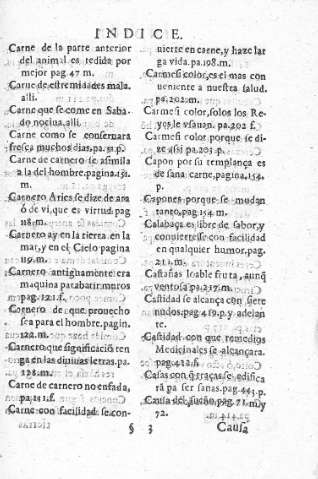 INDICE.
Carne de la parte anterior
del animal es tedida por
mejor pag 47 m.
Carne de estremidades mala.
alli.
Carne que se come en Saba-
do nociua. alli.
Carne como se conseruara
fresca muchos dias. pa. 51. p.
Carne de carnero se asimila
a la del hombre. pagina. 131.
m.
Carnero Aries se dize de ara
ó de vi, que es virtud. pag
118. m.
Carnero ay en la tierra en la
mar, y en el Cielo pagina
119. m.
Carnero antiguamente era
maquina para batir muros
pag. 121. f.
Carnero de que prouecho
sea para el hombre. pagin.
122. m.
Carnero que significació ten
ga en las diuinas letras. pa.
128. m.
Carne de carnero no enfada,
pa. 111. f.
Carne con facilidad se con-
uierte en carne, y haze lar
ga vida. pa. 108. m.
Carmesi color, es el mas con
ueniente a nuestra salud.
pa. 202. m.
Carmesi color, solos los Re-
yes le vsauan. pa. 202 f.
Carmesi color porque se di-
ze assi pa. 203. p.
Capon por su templança es
de sana carne, pagina, 154.
p.
Capones porque se mudan
tanto, pag, 154. m.
Calabaça es libre de sabor, y
conuiertese con facilidad
en qualquier humor, pag.
211. m.
Castañas loable fruta, aunq̃
ventosa pa. 217. m.
Castidad se alcança con siete
nudos. pag 419. p. y adelan
te.
Castidad con que remedios
Medicinales se alcançara.
pag. 412. f.
Casas con q̃ traças se edifica
rá pa ser sanas. pag. 443. p.
Causa del sueño pag. 71. m. y
72.
§ 3 Causa